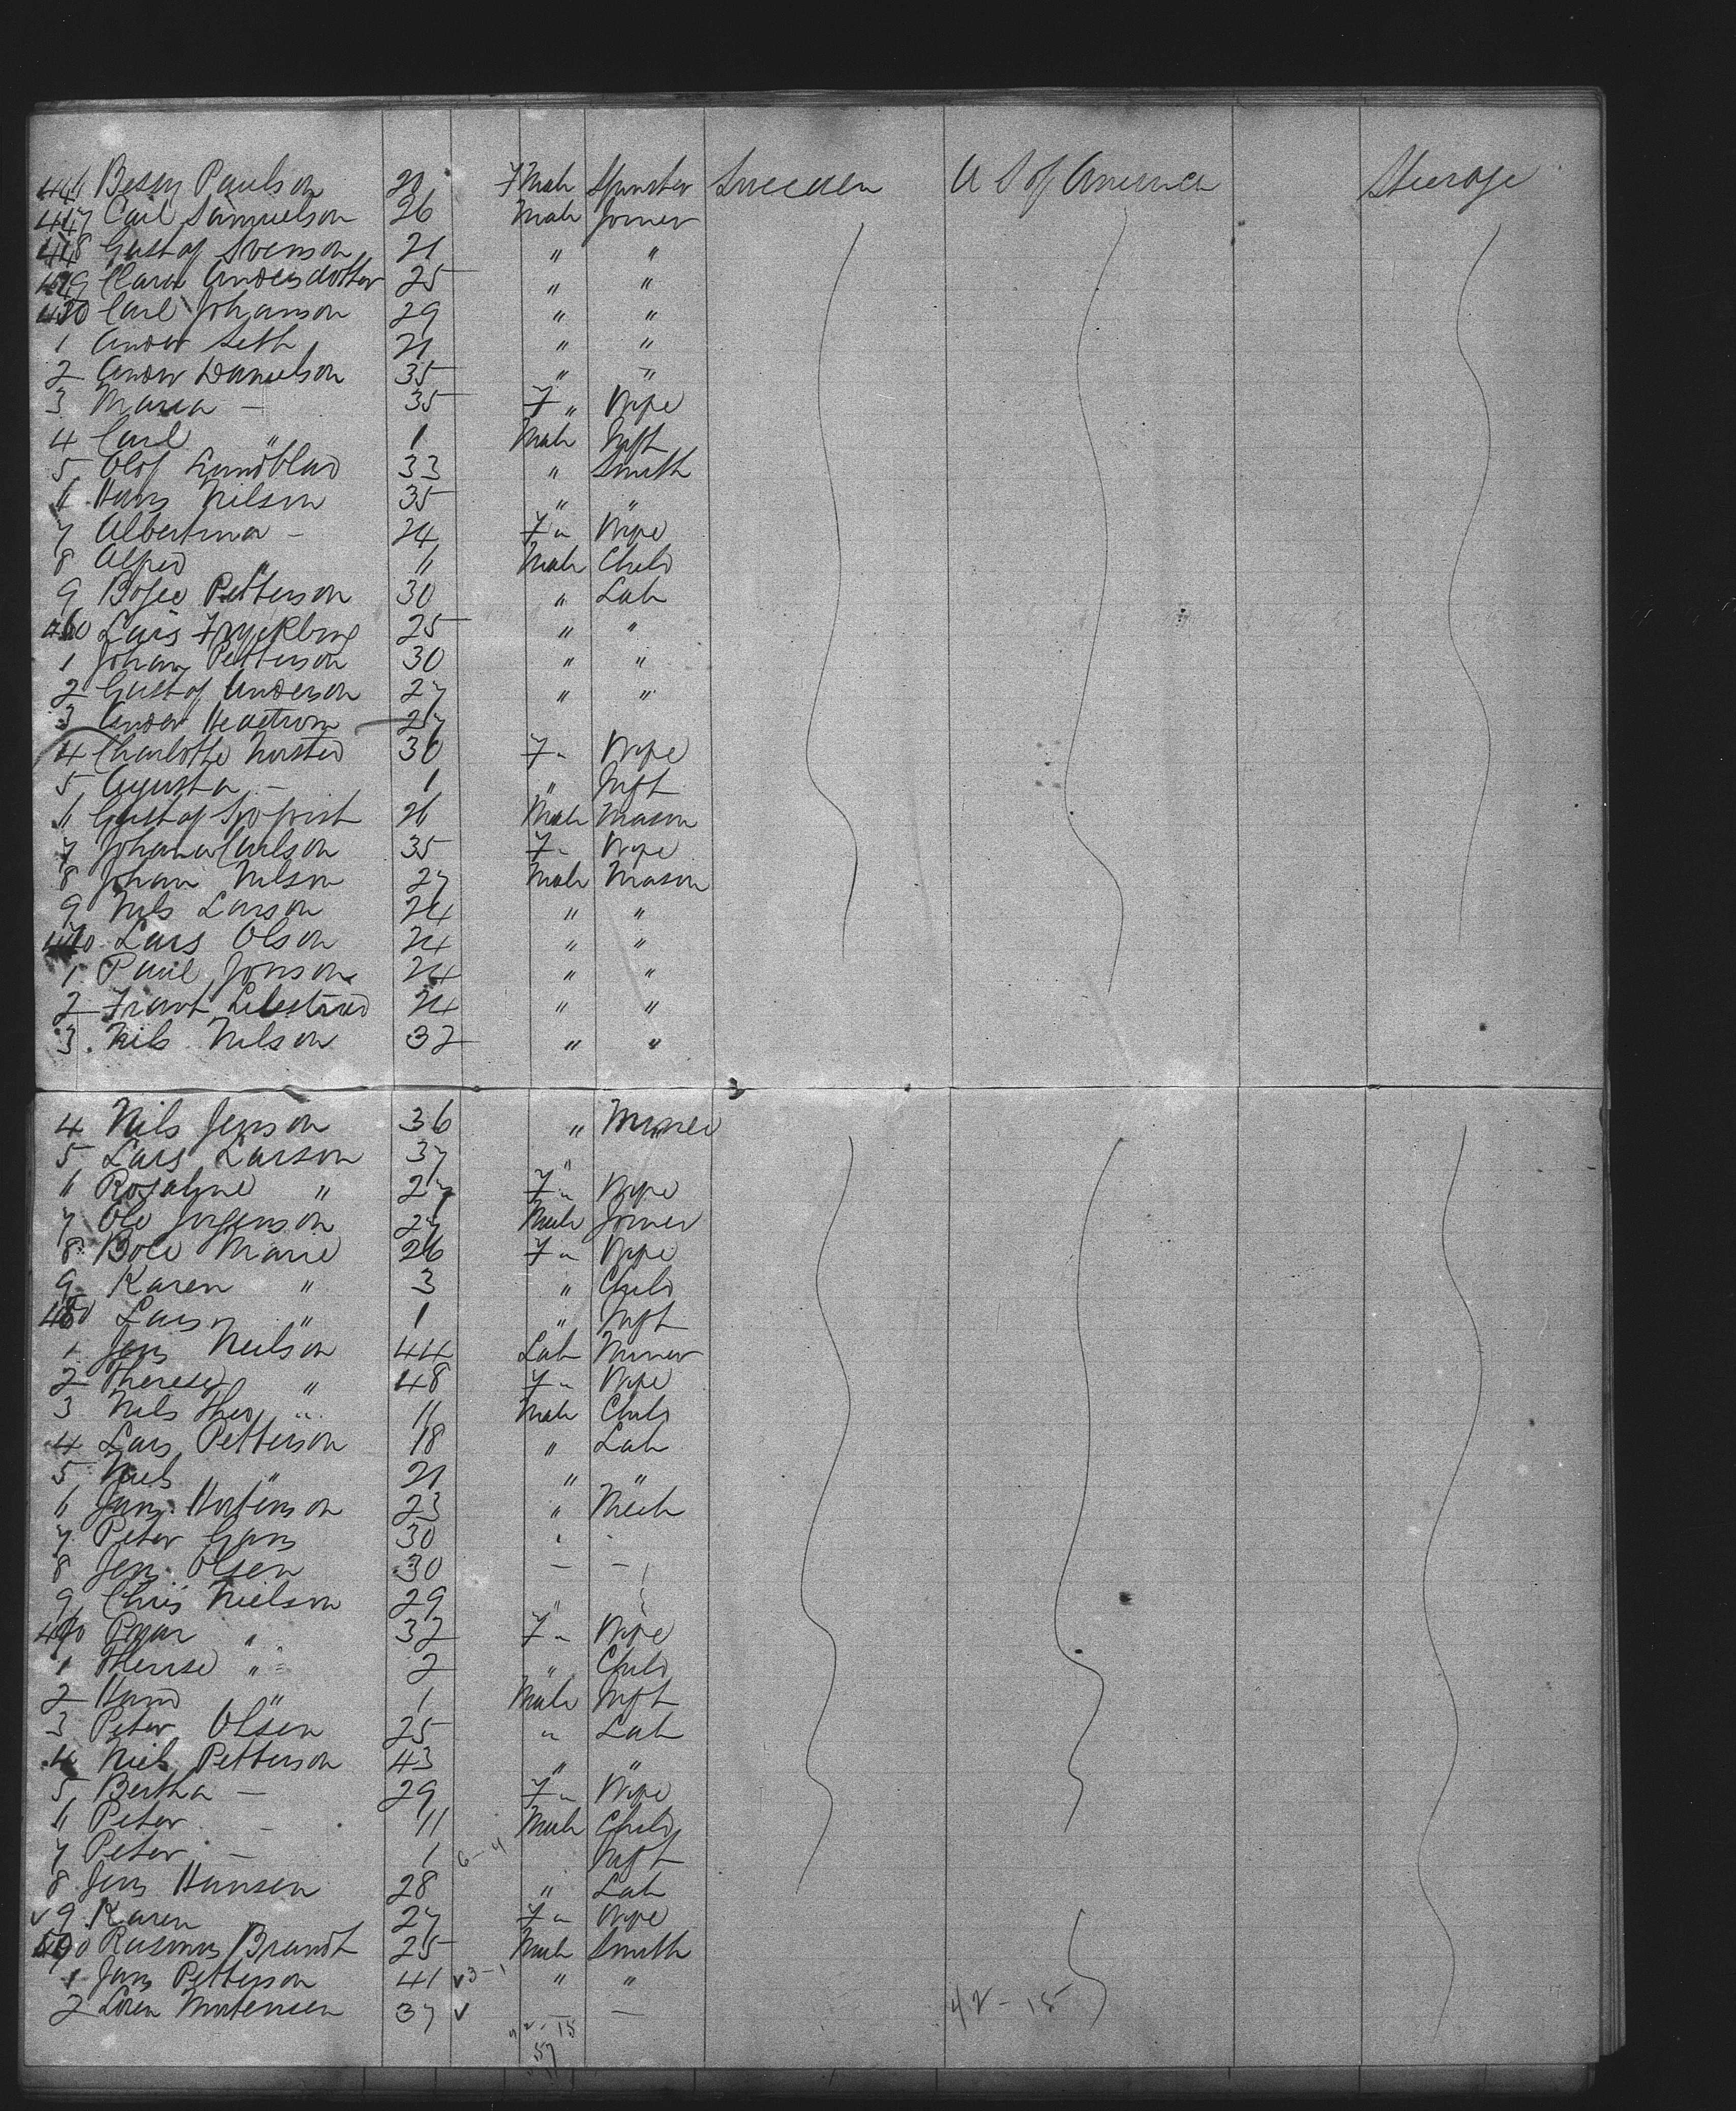 446 Bessy Paulson 20 F Male Spinster Sweeden U S of America Steerage
447 Carl Samuelson 26 Male Joiner
448 Gustaf Svenson 21 " "
449 Clara Andersdotter 25 " "
450 Carl Johanson 29 " "
1 Ander Seth 21 " "
2 Ander Danielson 35 " "
3 Maria - 35 F " Wife
4 Carl " 1 Male Inft
5 Olof Lundblad 33 " Smith
6 Hans Nilson 35 " "
7 Albertina - 24 F " Wife
8 Alfred " 11 Male Child
9 Petterson 30 " Lab
460 Lars 25 " "
1 Johan Petterson 30 " "
2 Gustaf Anderson 27 " "
3 Ander Hedstrom 27
4 Charlotte 30 F " Wife
5 Agusta - 1 " Inft
6 Gustaf 26 Male Mason
7 Johana Carlson 35 F " Wife
8 Johan Nilson 27 Male Mason
9 Nils Larson 24 " "
470 Lars Olson 24 " "
1 Paul Jonson 24 " "
2 24 " "
3 Nils Nilson 32 " "
4 Nils Jenson 36 " Miner
5 Lars Larson 37 "
6 Rosaline " 27 F " Wife
7 Ole Jorgenson 27 Male Joiner
8 Marie 26 F " Wife
9 Karen " 3 " Child
480 Lars " 1 " Inft
1 Jens Neilson 44 Lab Miner
2 Therese " 48 F " Wife
3 Nils Theo " 11 Male Child
4 Lars Petterson 18 " Lab
5 Niels " 21 " "
6 Jens 23 " Mech
7 Peter 30 " "
8 Jens Olsen 30 - -
9 Chris Nielson 29 "
490 " 32 F " Wife
1 " 2 " Child
2 Hans " 1 Male Inft
3 Peter Olsen 25 " Lab
4 Niels Petterson 43 " "
5 Bertha - 29 F " Wife
6 Peter - 11 Male Child
7 Peter - 1 Inft
8 Jens Hansen 28 " Lab
9 Karen 27 F " Wife
500 Rasmus Brandt 25 Male Smith
1 Jens Petterson 41 3-1 " "
2 Mortensen 37 - - 42-15
42-15
57